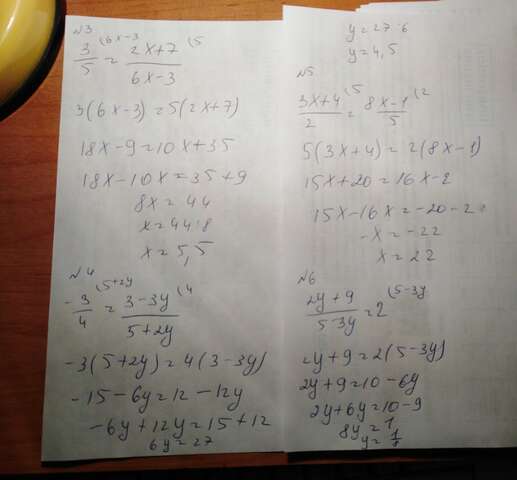 №3
3/5 (6x-3 = 2x+7/6x-3 (5
3(6x-3)=5(2x+7)
18x-9=10x+35
18x-10x=35+9
8x=44
x=44:8
x=5,5
№4
-3/4 (5+2y = 3-3y/5+2y (4
-3(5+2y)=4(3-3y)
-15-6y=12-12y
-6y+12y=15+12
6y=27
y=27:6
y=4,5
№5
3x+4/2 (5 = 8x-1/5 (2
5(3x+4)=2(8x-1)
15x+20=16x-2
15x-16x=-20-2
-x=-22
x=22
№6
2y+9/5-3y = 2 (5-3y
2y+9=2(5-3y)
2y+9=10-6y
2y+6y=10-9
8y=1